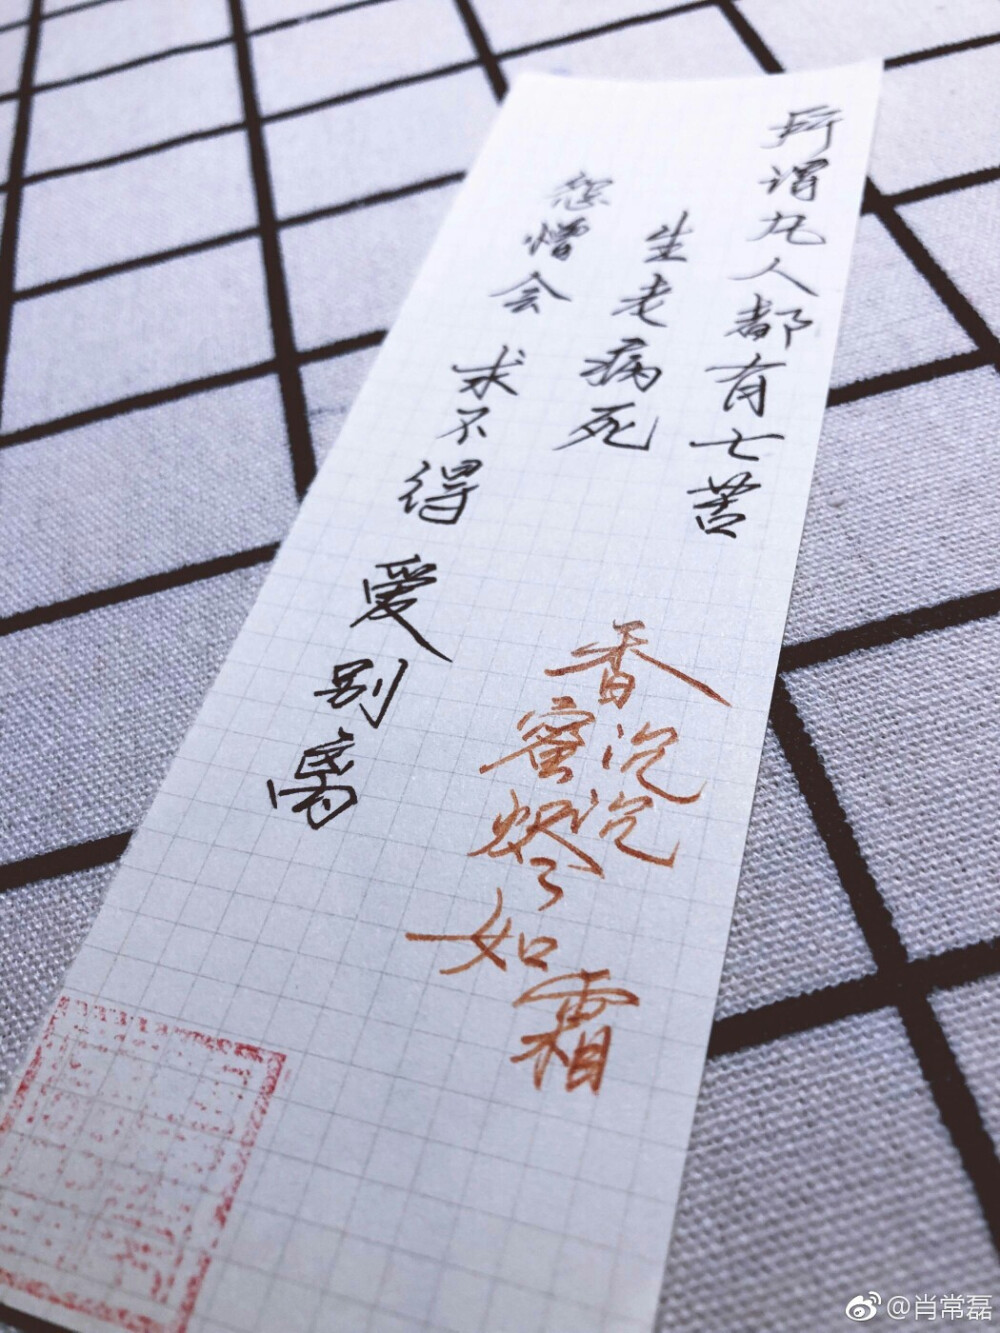 所谓凡人都有七苦
生老病死
怨憎会 求不得 爱别离
香蜜沉沉烬如霜
@肖常磊